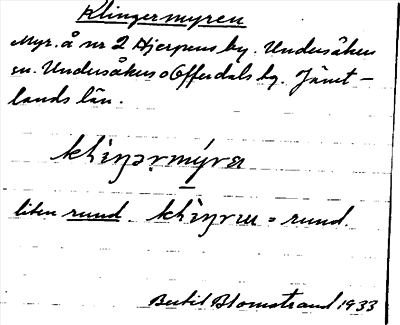 Klingermyren
Myr. å nr 2 Hjerpens by. Undersåkers
sn. Undersåkers o Offerdals hg. Jämt-
lands län.
liten rund. = rund.
Bertil Blomstrand 1933